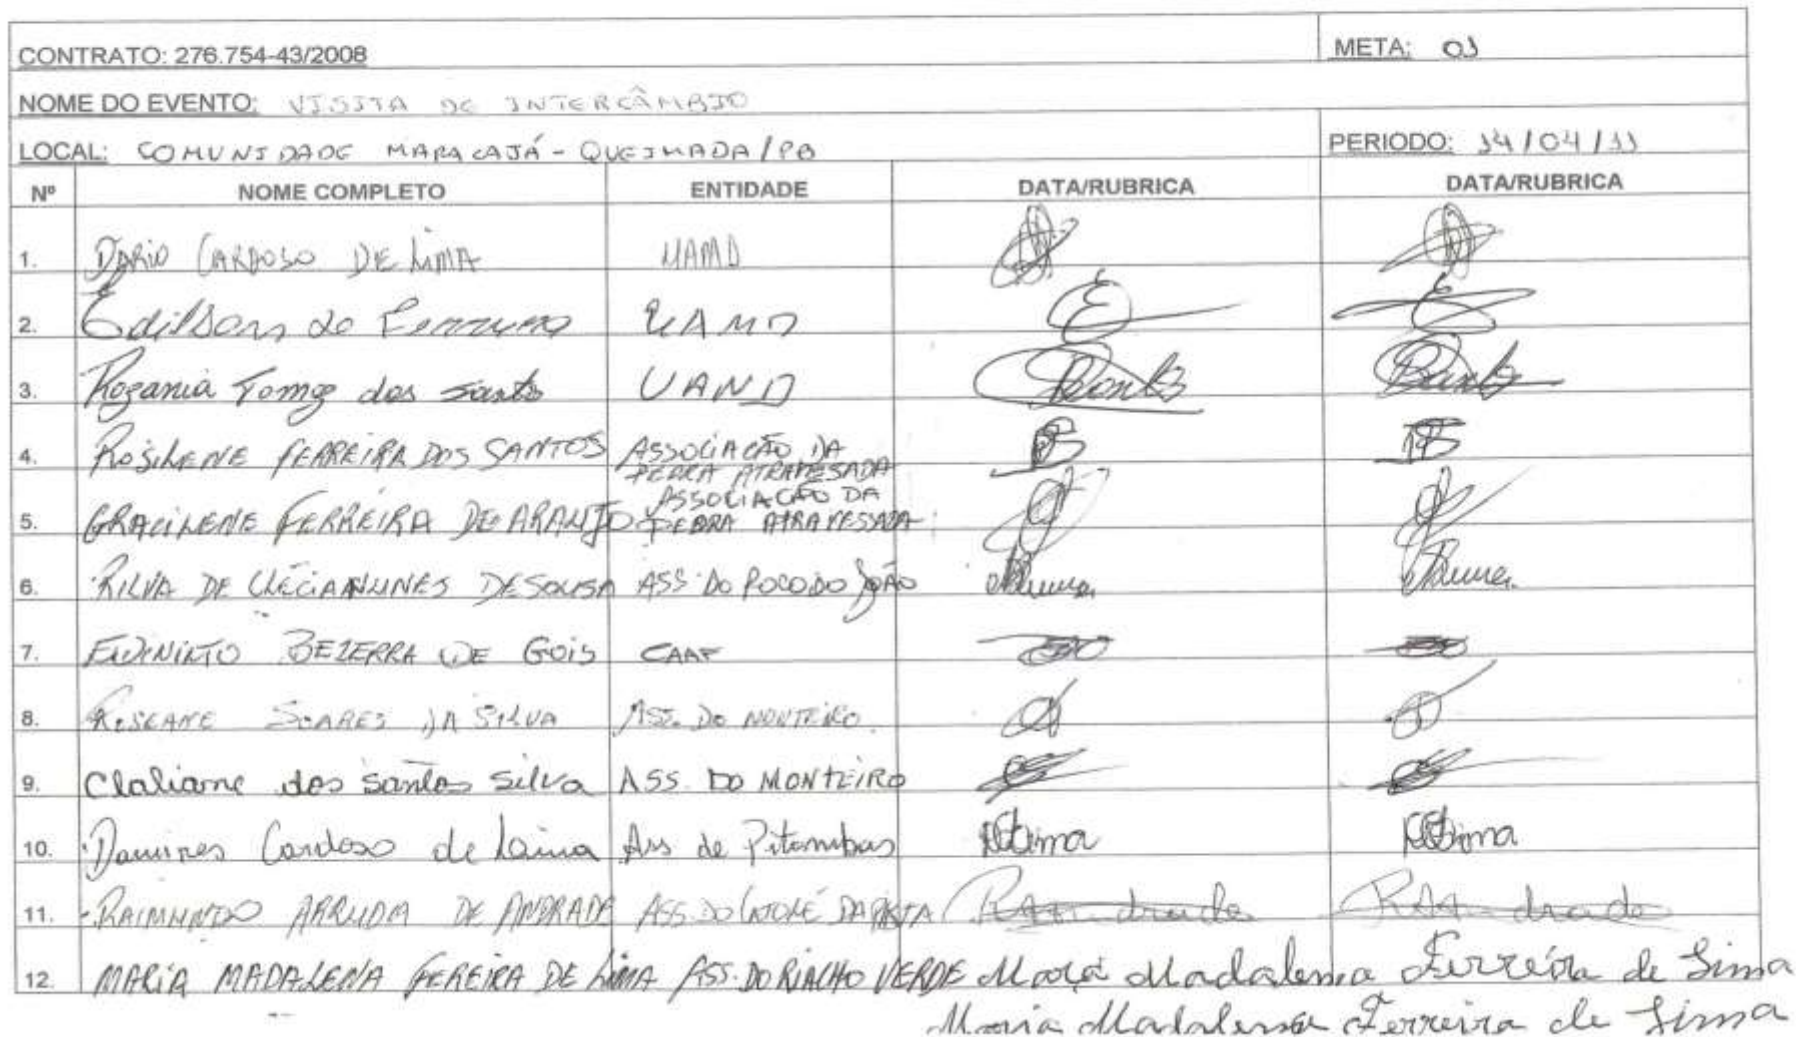 CONTRATO: 276.754-43/2008 META: 01
NOME DO EVENTO: VISITA DE INTERCÂMBIO
LOCAL: COMUNIDADE MARACAJÁ - QUEIMADA/PB PERIODO: 14/04/11
Nº NOME COMPLETO ENTIDADE DATA/RUBRICA DATA/RUBRICA
1. DARIO CARDOSO DE LIMA UAMD
2. Edilson do UAMD
3. Rozania Tomaz dos Santos UAND Santos Santos
4. ROSILENE FERREIRA DOS SANTOS ASSOCIAÇÃO DA
PEDRA ATRAVESADA
5. GRACILENE FERREIRA DE ARAUJO ASSOCIAÇÃO DA
PEDRA ATRAVESSADA
6. RILVA DE CLÉCIA NUNES DE SOUSA ASS. DO POCO DO JOÃO
7. BEZERRA DE GOIS CAAF
8. ROSEANE SOARES DA SILVA ASS. DO MONTEIRO
9. Claliane dos Santos Silva ASS. DO MONTEIRO
10. Damires Cardoso de Lima Ass de Pitombas
11. RAIMUNDO ARRUDA DE ANDRADE ASS. DO CATOLÉ DA RAndrade RAndrade
12. MARIA MADALENA FEREIRA DE LIMA ASS. DO RIACHO VERDE Maria Madalena Ferreira de Lima
Maria Madalena Ferreira de Lima